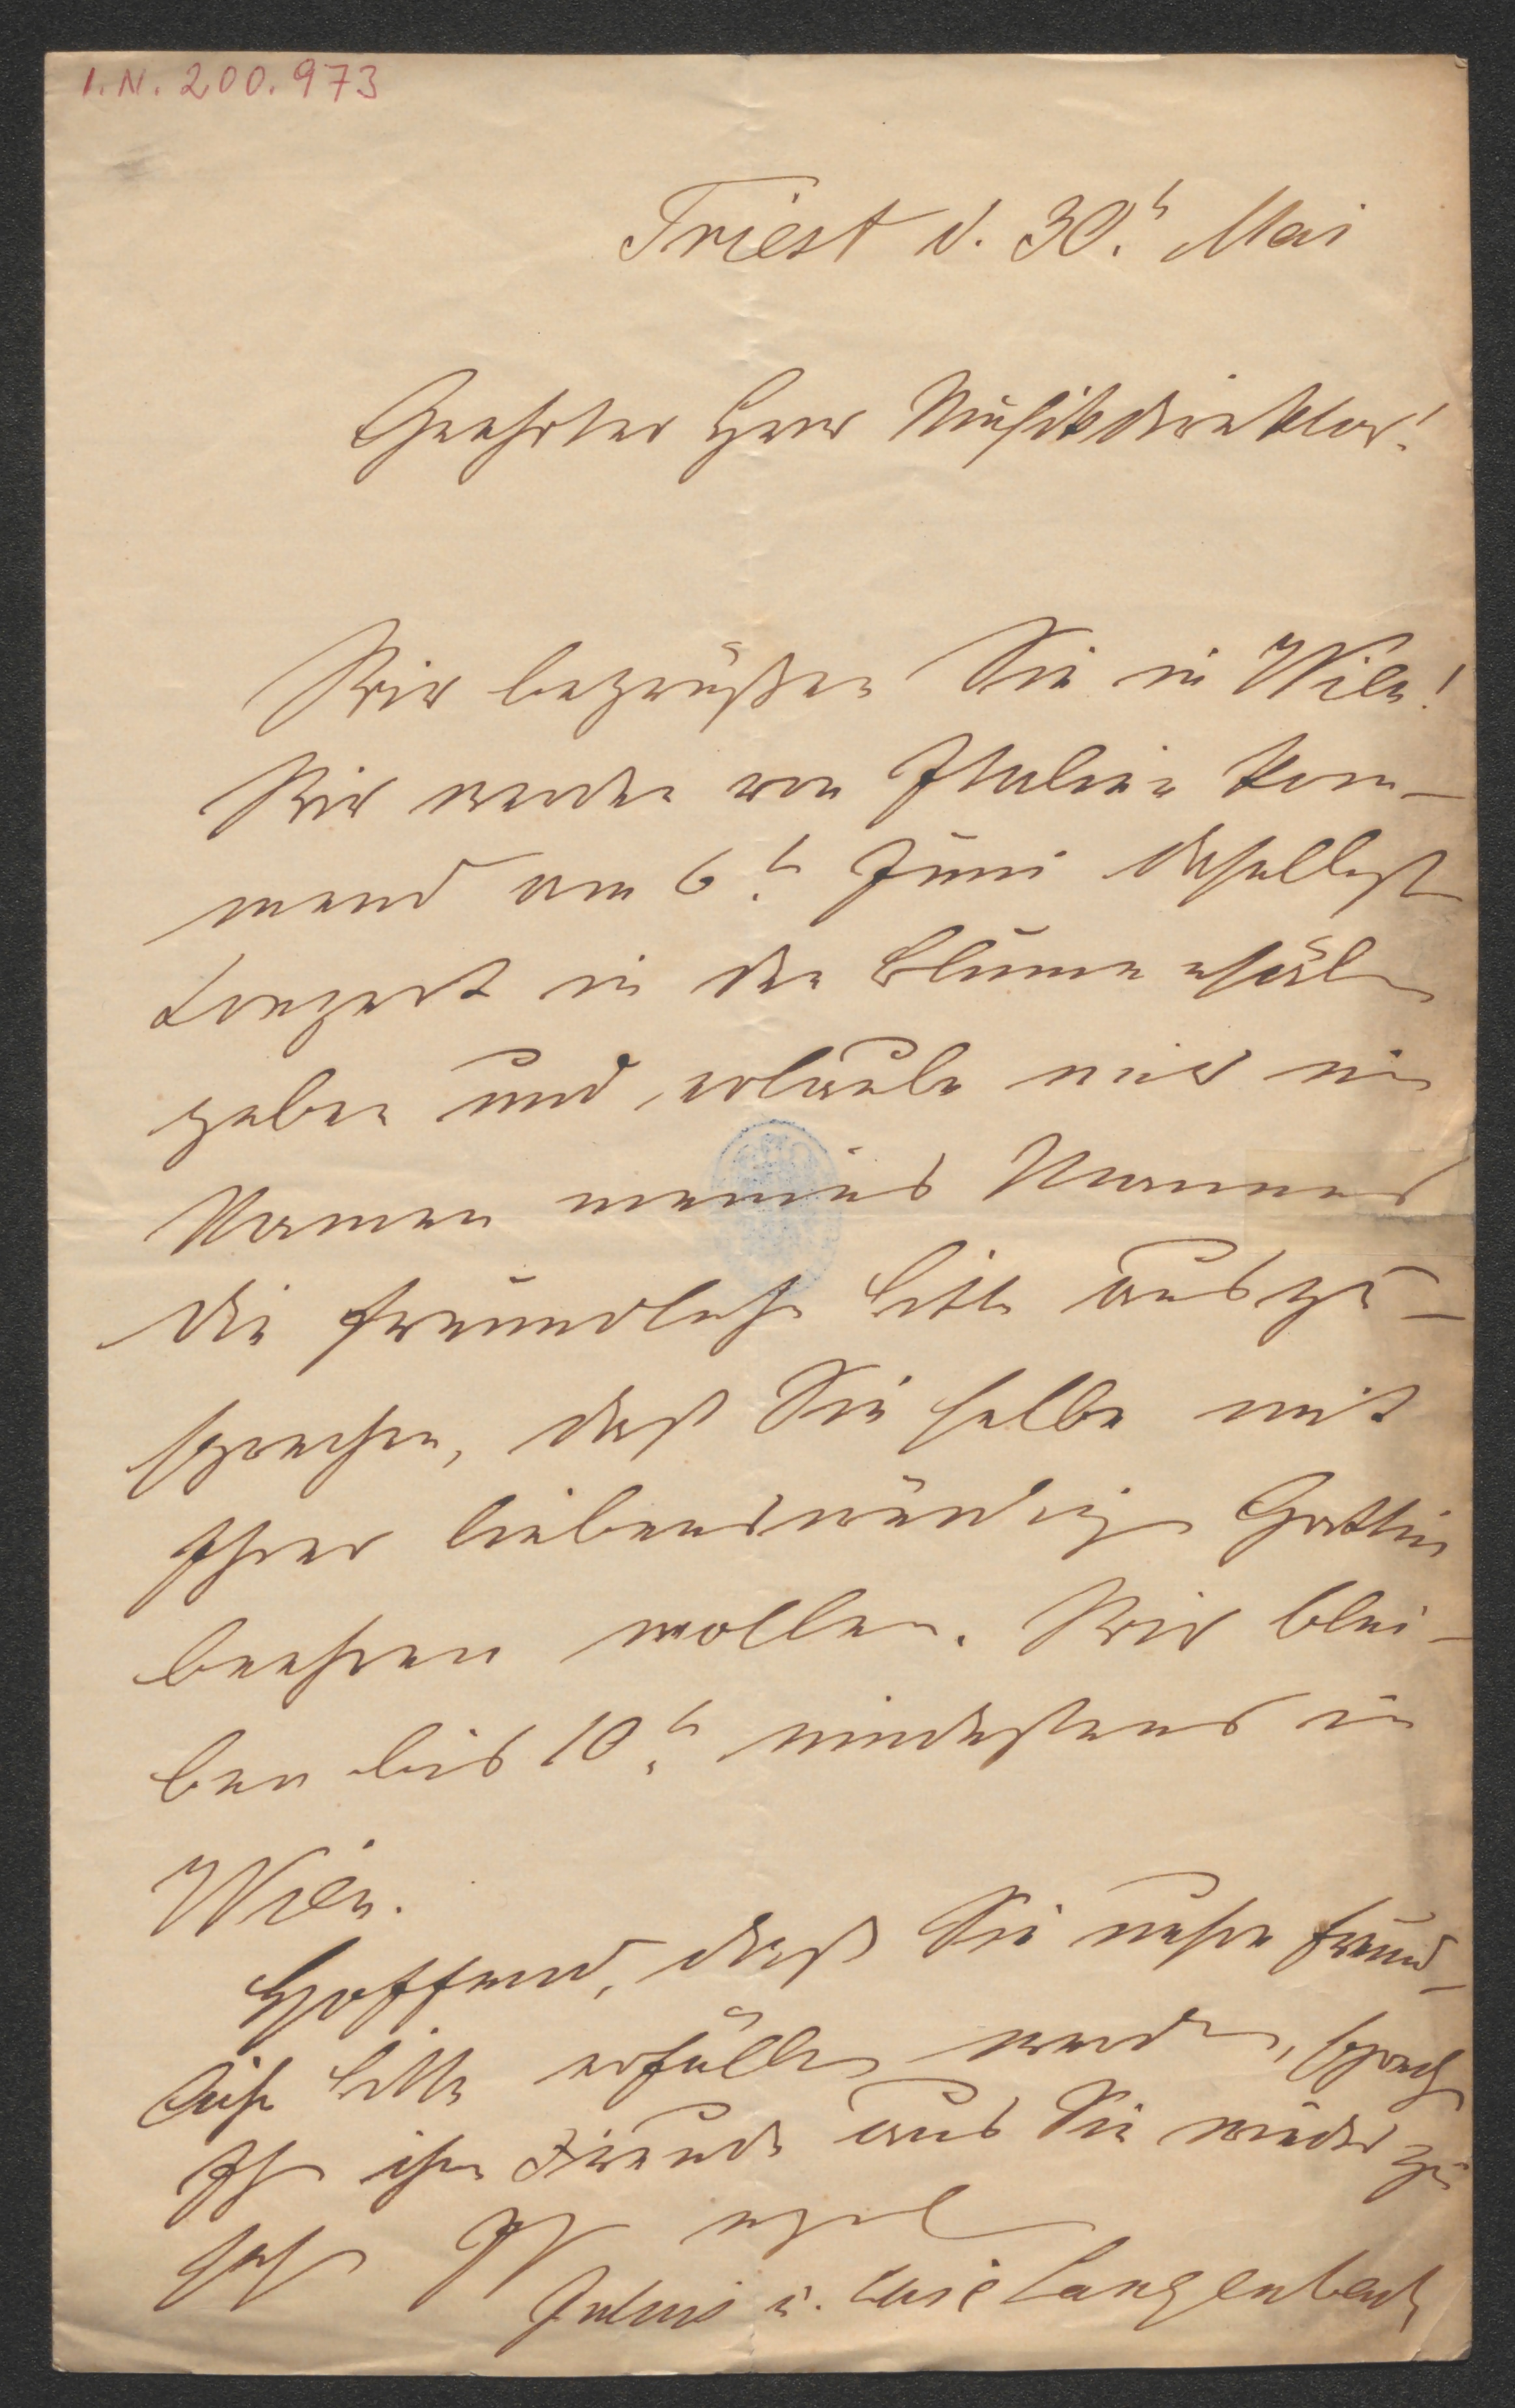 I.N. 200.973
Triest d. 30.t Mai
Geehrter Herr Musikdirektor!
Wir begrüßen Sie in Wien!
Wir werden von Italien kom-
mend am 6.t Juni daselbst
Conzert in den Blumensälen
geben und erlaube mir im
Namen meines Mannes
die freundliche Bitte auszu-
sprechen, daß Sie selbe mit
Ihrer liebenswürdigen Gattin
beehren wollen. Wir blei-
ben bis 10.t mindestens in
Wien.
Hoffend, daß Sie unsere freund-
liche Bitte erfüllen werden, spricht
Ihnen ihre Freude aus Sie wieder zu
sehen Ihr ergeb
Julius u. Langenbach